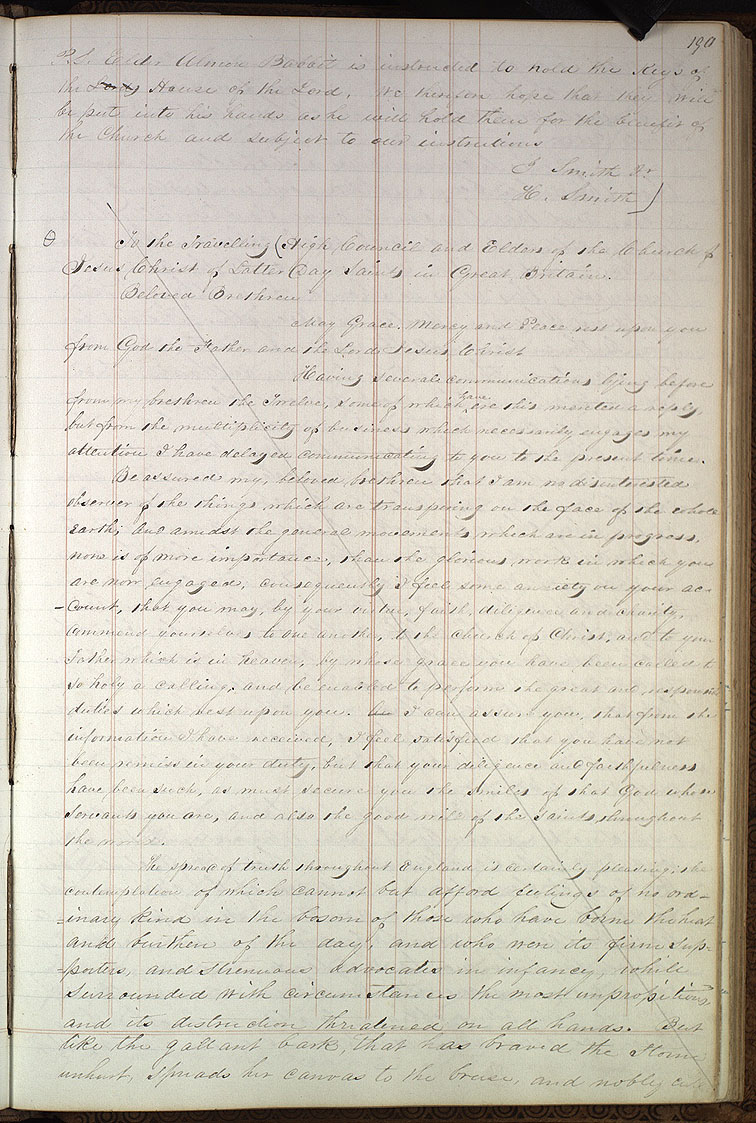 190
P.S. Elder Almon Babbit is instructed to hold the Keys of
the Lords House of the Lord, we therefore hope that they will
be put into his hands as he will hold them for the benefit of
the Church and subject to our instructions
J. Smith Jr
H. Smith)
To the Travelling (High Council and Elders of the Church of
Jesus Christ of Latter Day Saints in Great Britain.
Beloved Brethren
May Grace, Mercy and Peace rest upon you
from God the Father and the Lord Jesus Christ
Having several communications lying before
from my brethren the Twelve, some of which have ere this merited a reply,
but from the multiplicity of business which necessarily engages my
attention I have delayed communicating to you to the present time.
Be assured my beloved brethren that I am no disinterested
observer of the things which are transpiring on the face of the whole
Earth; and amidst the general movements which are in progress,
none is of more importance, than the glorious work in which you
are now engaged, consequently I feel some anxiety on your ac-
-count, that you may, by your virtue, faith, diligence and charity,
commend yourselves to one another, to the church of Christ, and to your
Father which is in Heaven, by whose grace you have been called to
so holy a calling, and be enabled to perform the great and responsible
duties which rest upon you. I can assure you, that from the
information I have received, I feel satisfied that you have not
been remiss in your duty, but that your diligence and faithfulness
have been such, as must secure you the smiles of that God whose
servants you are, and also the good will of the Saints throughout
the world.
The spread of truth throughout England is certainly pleasing; the
contemplation of which cannot but afford feelings of no ord-
-inary kind in the bosom of those who have borne the heat
and burthen of the day; and who were its firm sup-
-porters, and strenuous advocates in infancy, while
surrounded with circumstances the most unpropitious
and its destruction threatened on all hands. But
like the gallant bark, that has braved the Storm
unhurt, spreads her canvas to the breese, and nobly cuts